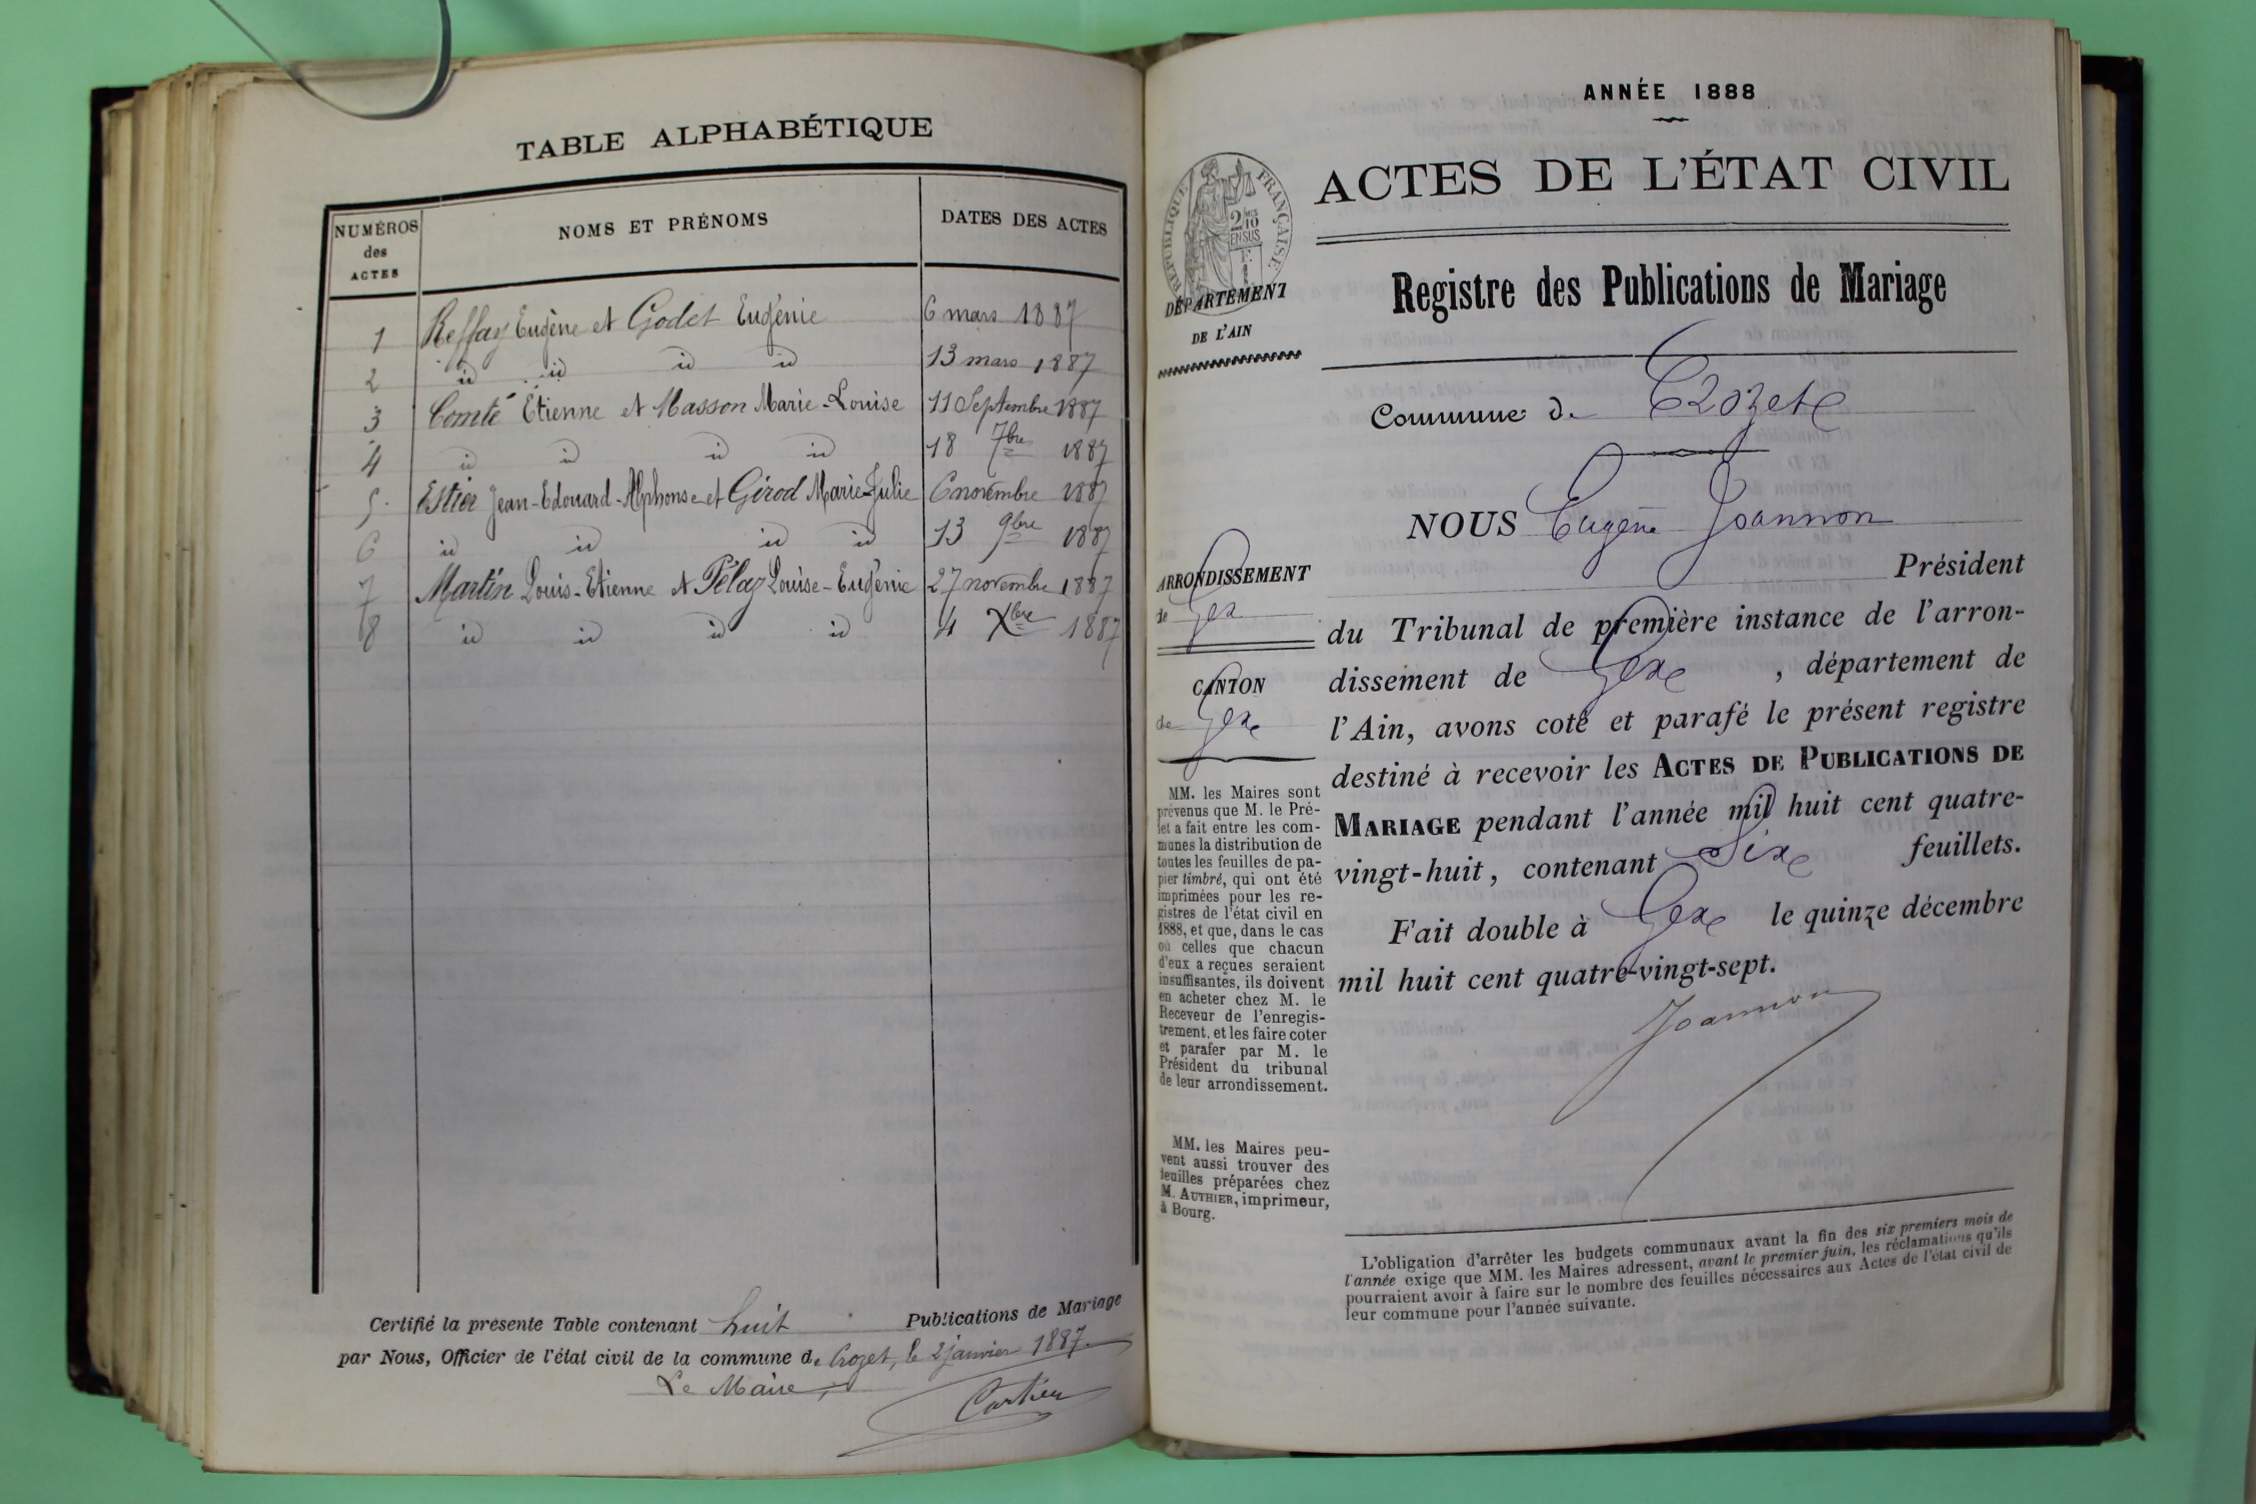 TABLE ALPHABÉTIQUE
NUMÉROS
des
ACTES
NOMS ET PRÉNOMS
DATES DES ACTES
1 Reffay Eugène et Godet Eugénie 6 mars 1887
2 id id id id 13 mars 1887
3 Comte Étienne et Masson Marie-Louise 11 Septembre 1887
4 id id id id 18 7bre 1887
5 Estier Jean-Edouard-Alphonse et Girod Marie-Julie 6 novembre 1887
6 id id id id 13 9bre 1887
7 Martin Louis-Etienne et Pélaz Louise-Eugénie 27 novembre 1887
8 id id id id 4 Xbre 1887
Certifié la présente Table contenant huit Publications de Mariage
par Nous, Officier de l'état civil de la commune de Crozet, le 2 janvier 1887.
Le Maire,
Cartier
ANNÉE 1888
ACTES DE L'ÉTAT CIVIL
RÉPUBLIQUE FRANÇAISE
2/10
EN SUS
DÉPARTEMENT
DE L'AIN
Registre des Publications de Mariage
Commune de Crozet
NOUS Eugène Joannon
Président
du Tribunal de première instance de l'arron-
dissement de Gex, département de
l'Ain, avons coté et parafé le présent registre
destiné à recevoir les ACTES DE PUBLICATIONS DE
MARIAGE pendant l'année mil huit cent quatre-
vingt-huit, contenant Six feuillets.
Fait double à Gex le quinze décembre
mil huit cent quatre-vingt-sept.
Joannon
ARRONDISSEMENT
de Gex
CANTON
de Gex
MM. les Maires sont
prévenus que M. le Pré-
fet a fait entre les com-
munes la distribution de
toutes les feuilles de pa-
pier timbré, qui ont été
imprimées pour les re-
gistres de l'état civil en
1888, et que, dans le cas
où celles que chacun
d'eux a reçues seraient
insuffisantes, ils doivent
en acheter chez M. le
Receveur de l'enregis-
trement, et les faire coter
et parafer par M. le
Président du tribunal
de leur arrondissement.
MM. les Maires peu-
vent aussi trouver des
feuilles préparées chez
M. AUTHIER, imprimeur,
à Bourg.
L'obligation d'arrêter les budgets communaux avant la fin des six premiers mois de
l'année exige que MM. les Maires adressent, avant le premier juin, les réclamations qu'ils
pourraient avoir à faire sur le nombre des feuilles nécessaires aux Actes de l'état civil de
leur commune pour l'année suivante.